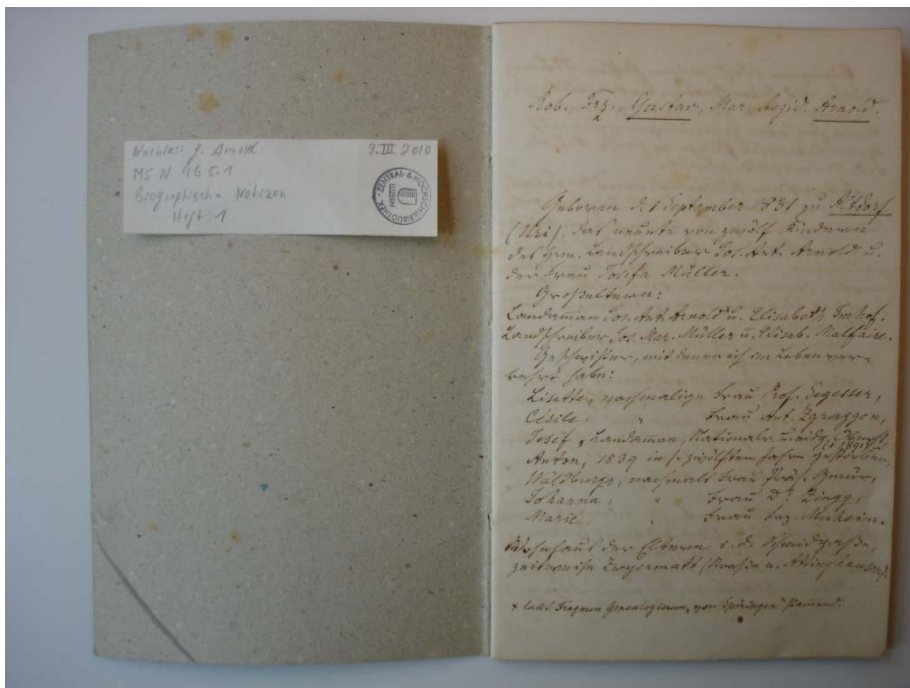 Nachlass G. Arnold 9. III 2010
MS N 46 5-1
Biographische Notizen
Heft 1
ZENTRAL- & HOCHSCHULBIBLIOTHEK LUZERN
Rob. Frz. Gustav, Mar. Aegid. Arnold.
Geboren d. 1 September 1831 zu Altdorf
(Uri), das neunte von zwölf Kindern
des Hrn. Landschreiber Jos. Ant. Arnold u.
der Frau Josefa Müller.
Großeltern:
Landamman Jos. Ant. Arnold u. Elisabeth Imhof.
Landschreiber Jos. Mar. Müller u. Elisab.
Geschwister, mit denen ich im Leben ver-
kehrt habe:
Lisette, nachmalige Frau Prof. Segesser,
Cécile, " Frau Ant. Zgraggen,
Josef, Landamman, Nationalr. u. eidg. Oberst,
Anton, 1839 in s. zwölften Jahre gestorben,
Waldburga, nachmals Frau Präs. Gmür,
Johanna, " Frau Dr. Zingg,
Marie, " Frau Ing. Muheim.
Wohnhaus der Eltern i. d. Schmidgasse
zeitweise (Straße n. Attinghausen).
* laut Fragmen Genealogicum, von Spiringen stammend.